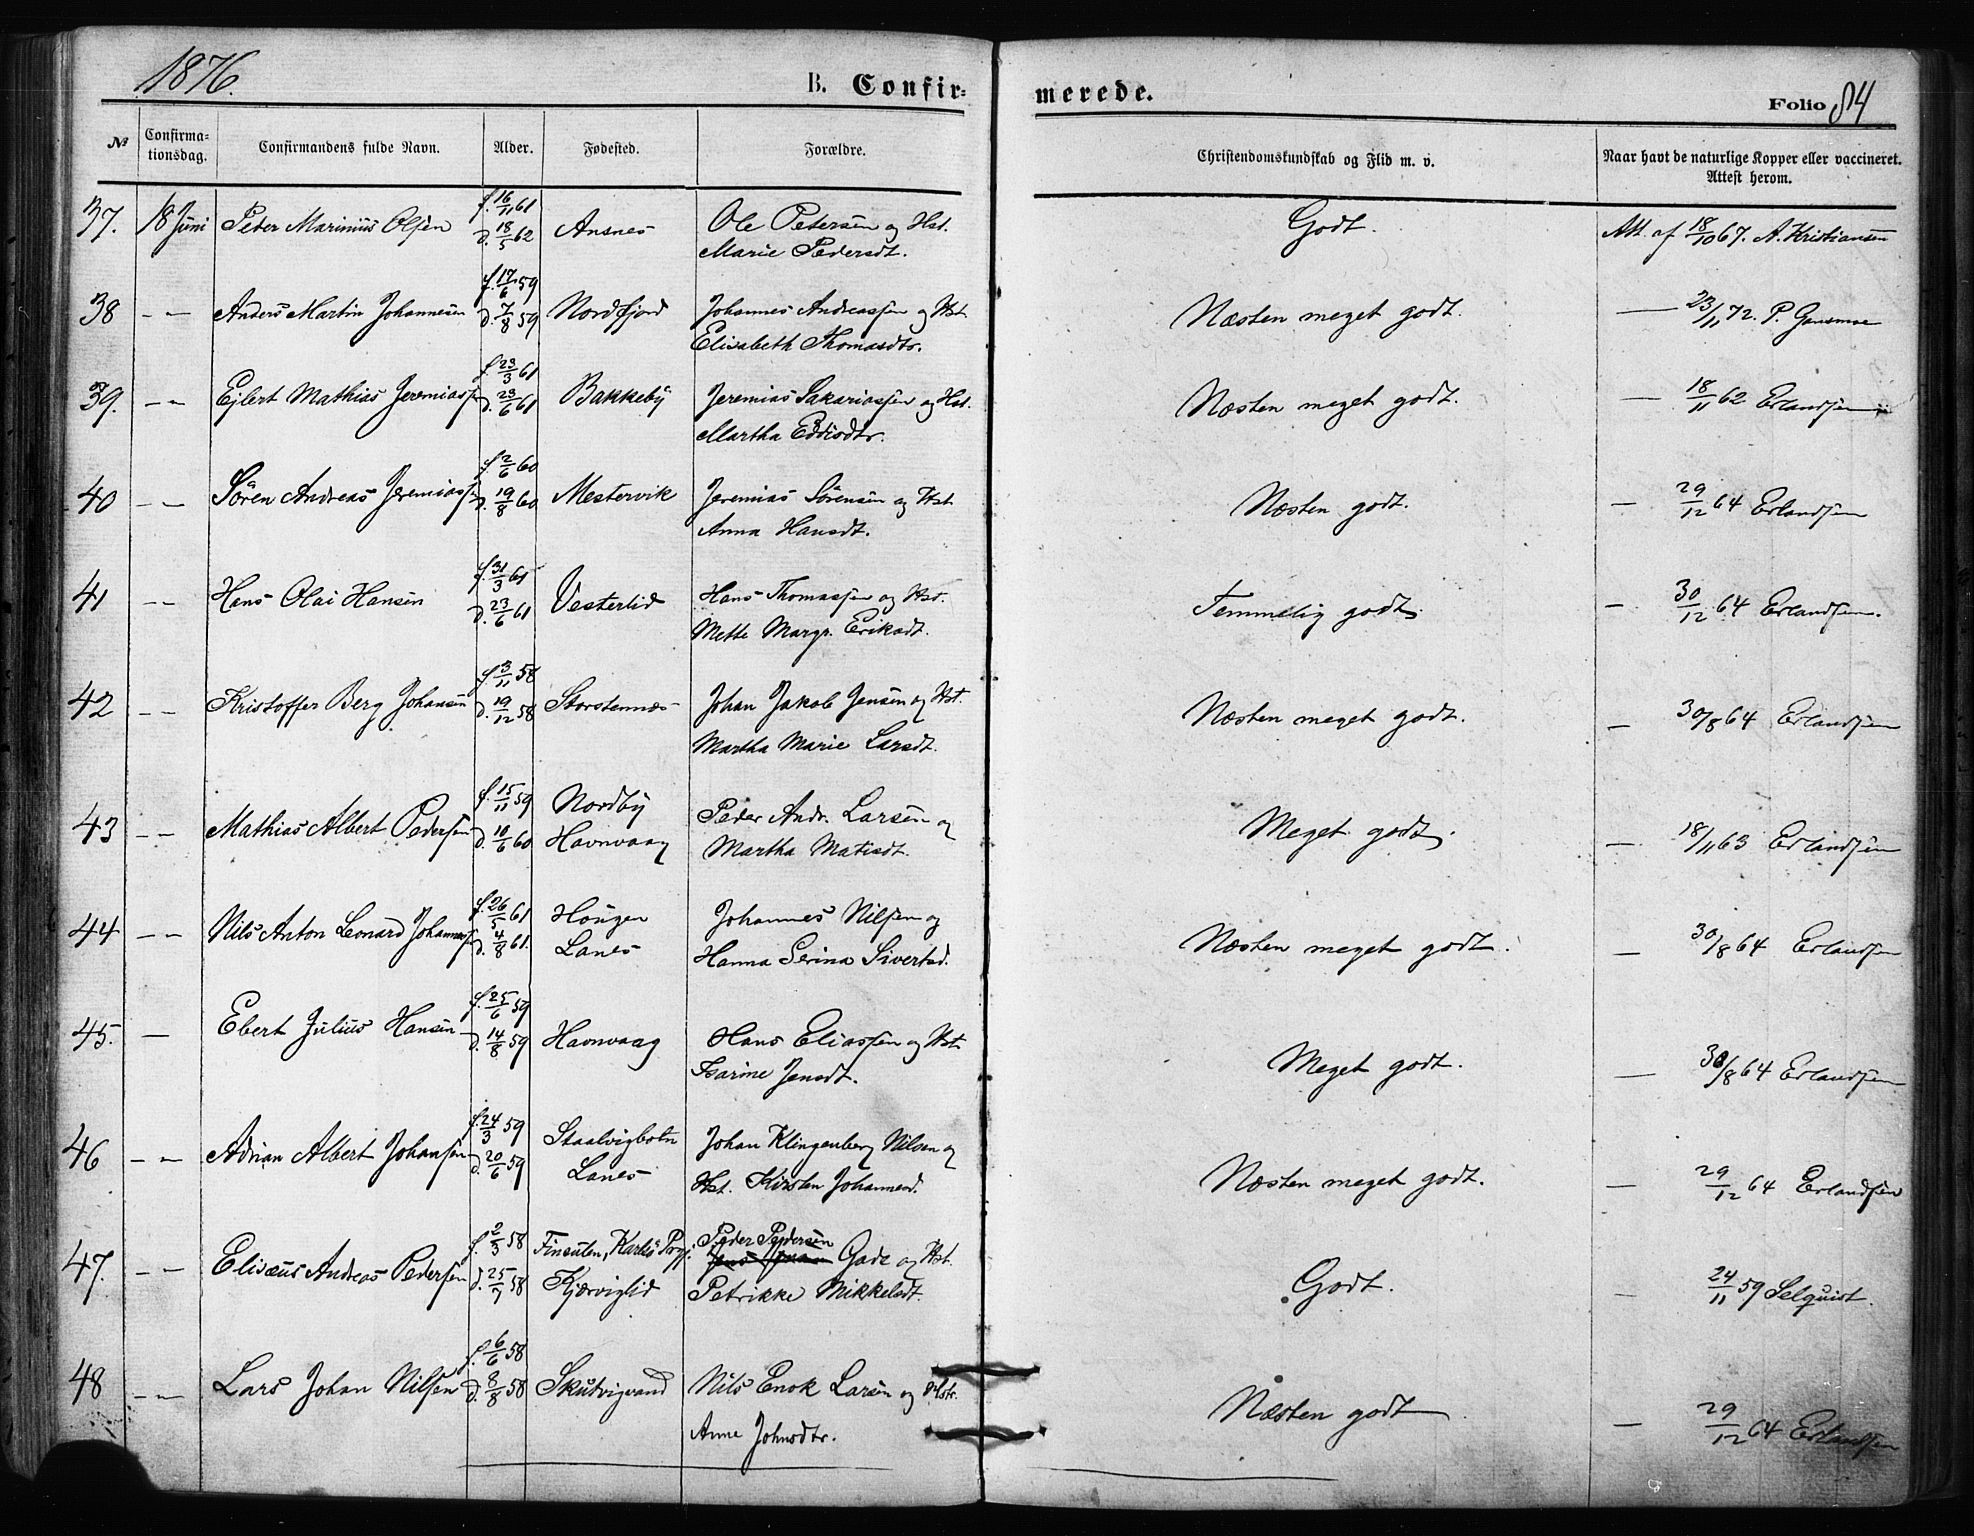 1876.
B. Confir=
merede.
Folio 84
№
Confirma=
tionsdag.
Confirmandens fulde Navn.
Alder.
Fødested.
Forældre.
Christendomskundskab og Flid m. v.
Naar havt de naturlige Kopper eller vaccineret.
Attest herom.
37. 18 Juni Peter Marinius Olsen f. 16/11 61 d. 18/5 62 Ansnes Ole Petersen og Hst. Godt. Att. af 18/10 67. A. Kristiansen
Marie Pedersdt.
38 - - Anders Martin Johannesen f. 17/6 59 d. 7/8 59 Nordfjord Johannes Andreassen og Hst. Næsten meget godt. — 23/11 72. P. Gansmoe
Elisabeth Thomasdtr.
39. - - Ejlert Mathias Jeremiassen f. 23/3 61 d. 23/6 61 Bakkeby Jeremias Sakariassen og Hst. Næsten meget godt. — 18/11 62 Erlandsen
Martha Eddisdtr.
40 - - Sören Andreas Jeremiassen f. 2/6 60 d. 19/8 60 Mestervik Jeremias Sörensen og Hst. Næsten godt. — 29/12 64 Erlandsen
Anna Hansdt.
41 - - Hans Olai Hansen f. 31/3 61 d. 23/6 61 Vesterlid Hans Thomassen og Hst. Temmelig godt. — 30/12 64 Erlandsen.
Mette Margr. Eriksdt.
42 - - Kristoffer Berg Johansen f. 3/11 58 d. 19/12 58 Storstennæs Johan Jakob Jensen og Hst. Næsten meget godt. — 30/8 64 Erlandsen
Martha Marie Larsdt.
43 - - Mathias Albert Pedersen f. 15/11 59 d. 10/6 60 Nordby Peder Andr. Larsen og Meget godt. — 18/11 63 Erlandsen
Havnvaag Martha Matisdt.
44 - - Nils Anton Leonard Johannessen f. 26/5 61 d. 4/8 61. Hougen Johannes Nilsen og Næsten meget godt. — 30/8 64 Erlandsen
Lanes Hanna Serina Sivertsd.
45. — Ebert Julius Hansen f. 25/6 59 d. 14/8 59 Havnvaag Hans Eliassen og Hst. Meget godt. — 30/8 64 Erlandsen
Isarine Jensdt.
46 - - Adrian Albert Johansen f. 24/3 59 d. 20/6 59 Staalvigbotn Johan Klingenberg Nilsen og Næsten meget godt. — 29/12 64 Erlandsen
Lanes Hst. Kirsten Johannesd.
47. - - Elisæus Andreas Pedersen f. 2/3 58 d. 25/7 58 Finsuten, Karlsö Pgj. Peder Pedersen Gade og Hst. Godt. — 24/11 59 Selquist.
Kjærviglid Petrikke Mikkelsdt.
48 - - Lars Johan Nilsen f. 6/6 58 d. 8/8 58 Skutvigvand Nils Enok Larsen og Hstr. Næsten godt — 29/12 64 Erlandsen
Anne Johnsdtr.